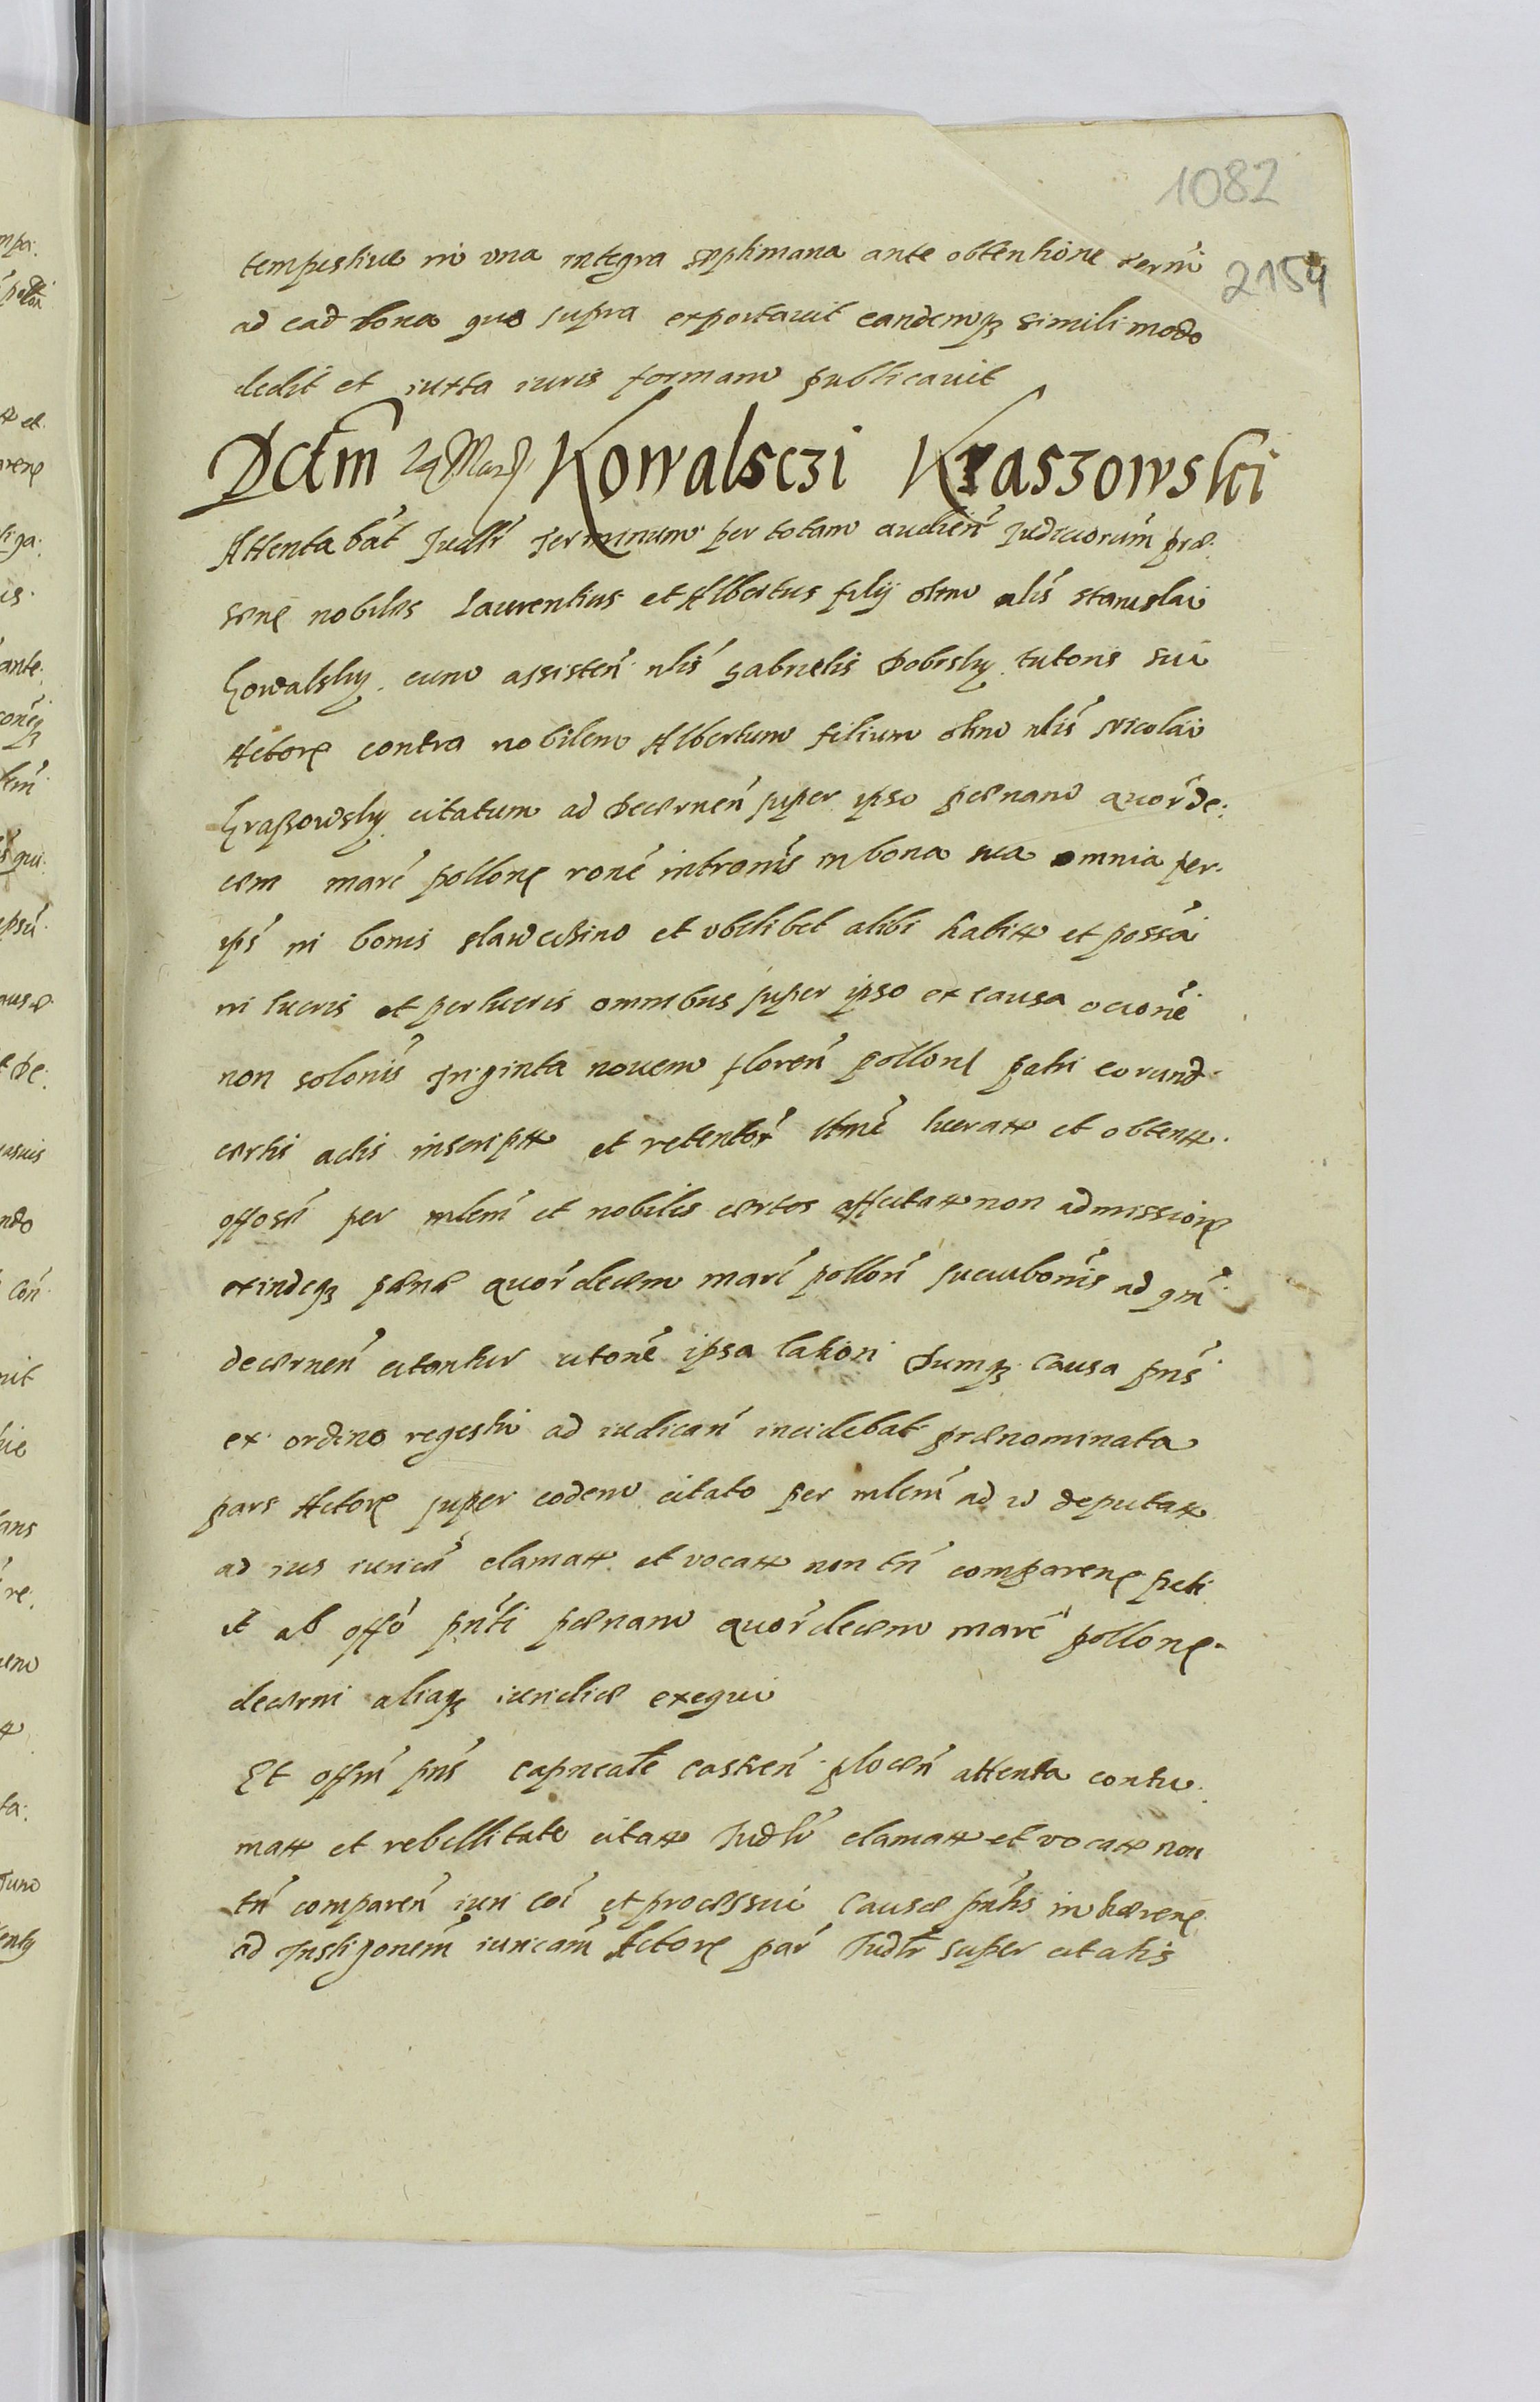 1082
2154
tempestiue in vna integra septimana ante obtentione termi
ad ead bona quo supra exportauit eandemq simili modo
dedit et iuxta iuris formam publicauit
Dctm 14 Mar Kowalsczi Kraszowski
Attentabat Judlr Terminum per totam audien Judiciorum præ:
sens nobiles Laurentius et Albertus filij olim nlis Stanislai
Kowalsky cum assisten nlis Gabrielis Dobrsky tutoris sui
Actores contra nobilem Albertum filium olim nlis Nicolai
Kraßowsky citatum ad Decernen super ipso pænam quor de:
cem marc pollone rone intromis in bona sua omnia per
ips in bonis et vbilibet alibi habita et possa
in lucris et perlucris omnibus super ipso ex causa
non solonis Triginta nouem floren pollone patri eorund
certis actis inscripta et retentor ltme lucrata et obtenta
offosu per mlem et nobiles certos non admissione
exindeq pænæ quor decem marc pollon succubonis ad qm
decernen citantur citone ipsa latiori Dumq Causa pns
ex ordine regestri ad iudican incidebat prænominata
pars Actore super eodem citato per mlem ad id deputata
ad ius iurica clamata et vocata non tn comparens peti
it ab offo pnti pænam quor decem marc pollone
decerni aliaq iuridice exequi
Et offm pns Capneale Castren plocen attenta contu:
matia et rebellitate citata Judlr clamata et vocata non
tn comparen iuri coi et processui Causæ pntis inhærens
ad Instigonem iuricam Actore par Judlr super citatis